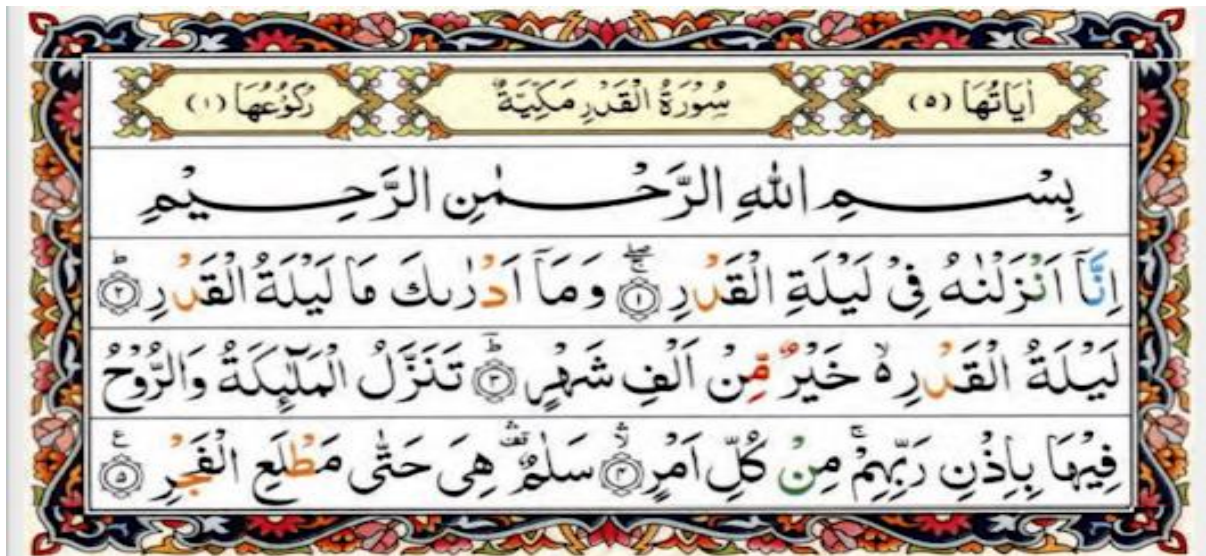 اٰيَاتُهَا (٥) سُوْرَةُ الْقَدْرِ مَكِّيَّةٌ رُكُوْعُهَا (١)
بِسْمِ اللّٰهِ الرَّحْمٰنِ الرَّحِيْمِ
اِنَّاۤ اَنْزَلْنٰهُ فِیْ لَیْلَةِ الْقَدْرِ ۚۖ﴿۱﴾ وَمَاۤ اَدْرٰىكَ مَا لَیْلَةُ الْقَدْرِ ؕ﴿۲﴾
لَیْلَةُ الْقَدْرِ ۙ۬ خَیْرٌ مِّنْ اَلْفِ شَهْرٍ ؕؔ﴿۳﴾ تَنَزَّلُ الْمَلٰٓىِٕكَةُ وَالرُّوْحُ
فِیْهَا بِاِذْنِ رَبِّهِمْ ۚ مِنْ كُلِّ اَمْرٍ ۙۛ﴿۴﴾ سَلٰمٌ ۛ۫ هِیَ حَتّٰی مَطْلَعِ الْفَجْرِ ۠﴿۵﴾